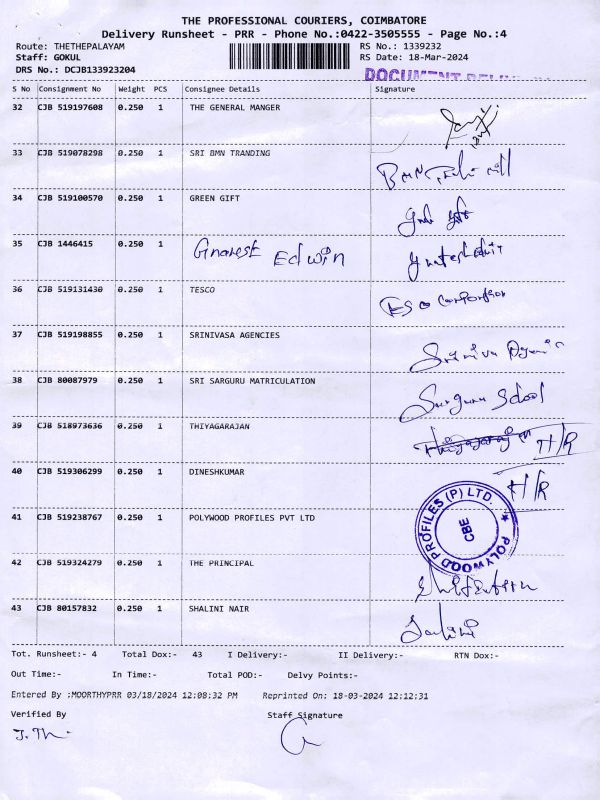 THE PROFESSIONAL COURIERS, COIMBATORE
Delivery Runsheet - PRR - Phone No.:0422-3505555 - Page No.:4
Route: THETHEPALAYAM RS No.: 1339232
Staff: GOKUL RS Date: 18-Mar-2024
DRS No.: DCJB133923204
DOCUMENT
S No Consignment No Weight PCS Consignee Details Signature
32 CJB 519197608 0.250 1 THE GENERAL MANGER
33 CJB 519078298 0.250 1 SRI BMN TRANDING BMN
34 CJB 519100570 0.250 1 GREEN GIFT
35 CJB 1446415 0.250 1 Gnanesh Edwin
36 CJB 519131430 0.250 1 TESCO
37 CJB 519198855 0.250 1 SRINIVASA AGENCIES
38 CJB 80087979 0.250 1 SRI SARGURU MATRICULATION Surguru School
39 CJB 518973636 0.250 1 THIYAGARAJAN H/R
40 CJB 519306299 0.250 1 DINESHKUMAR H/R
41 CJB 519238767 0.250 1 POLYWOOD PROFILES PVT LTD POLYWOOD PROFILES (P) LTD. CBE
42 CJB 519324279 0.250 1 THE PRINCIPAL
43 CJB 80157832 0.250 1 SHALINI NAIR Shalini
Tot. Runsheet:- 4 Total Dox:- 43 I Delivery:- II Delivery:- RTN Dox:-
Out Time:- In Time:- Total POD:- Delvy Points:-
Entered By :MOORTHYPRR 03/18/2024 12:08:32 PM Reprinted On: 18-03-2024 12:12:31
Verified By Staff Signature